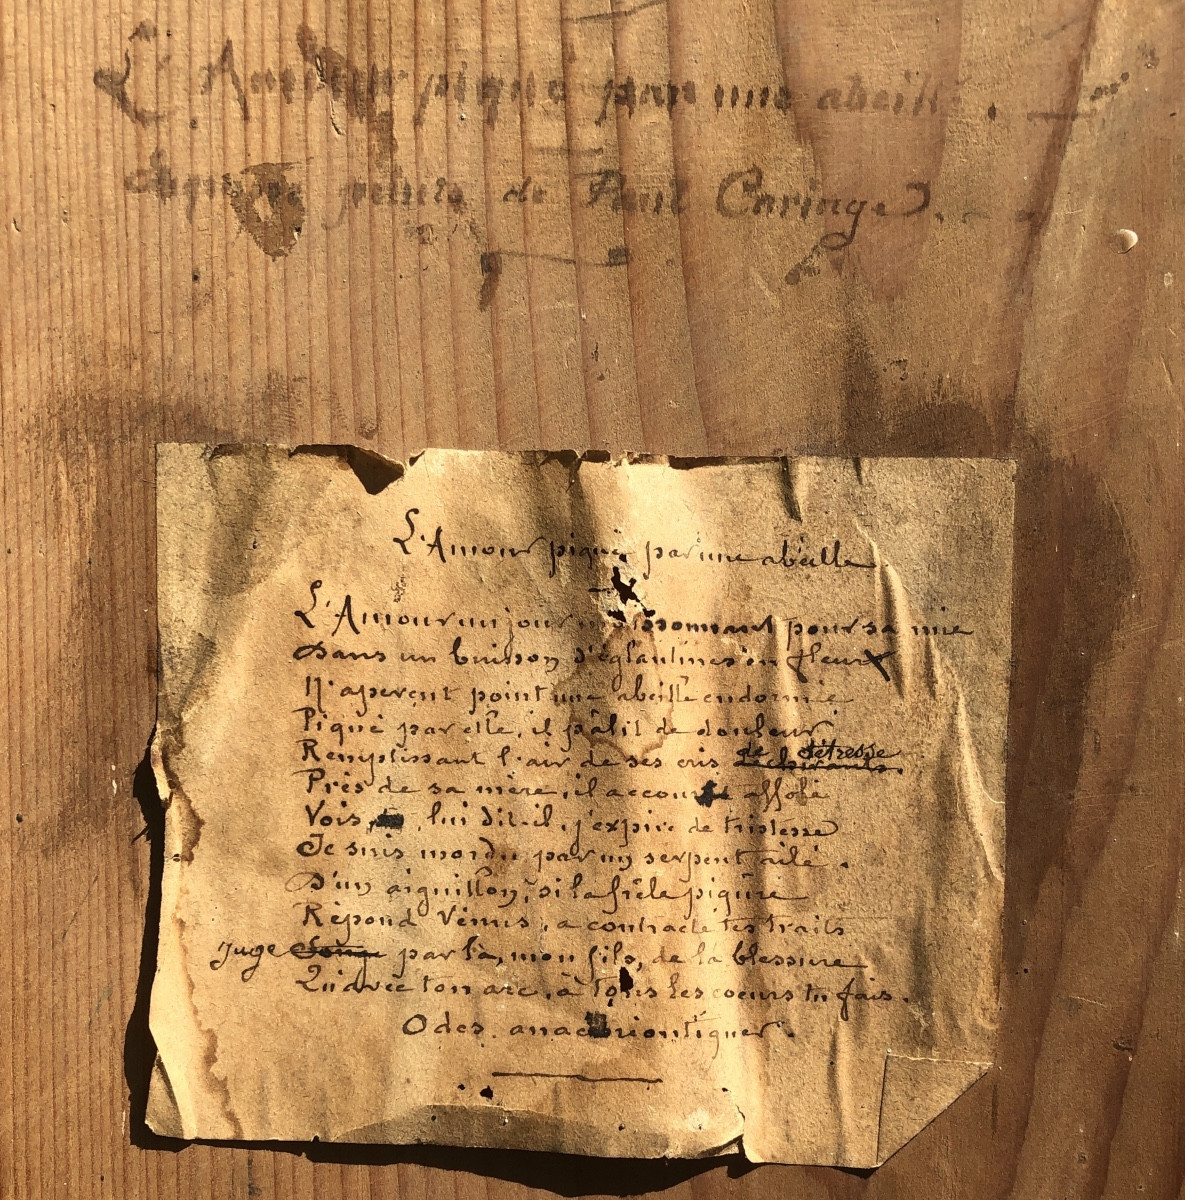 L'Amour piqué par une abeille.
peinte de Paul Caringe.
L'Amour piqué par une abeille
L'Amour un jour moissonnant pour sa mie
Dans un buisson d'églantines en fleur
N'aperçut point une abeille endormie
Piqué par elle, il pâlit de douleur
Remplissant l'air de ses cris déchirants. de détresse
Près de sa mère, il accourt affolé
Vois, lui dit-il, j'expire de tristesse
Je suis mordu par un serpent ailé.
D'un aiguillon, si la frêle piqûre
Répond Vénus, a contracté tes traits
Juge Songe par là, mon fils, de la blessure
Qu'avec ton arc, à tous les coeurs tu fais.
Odes anacréontiques.